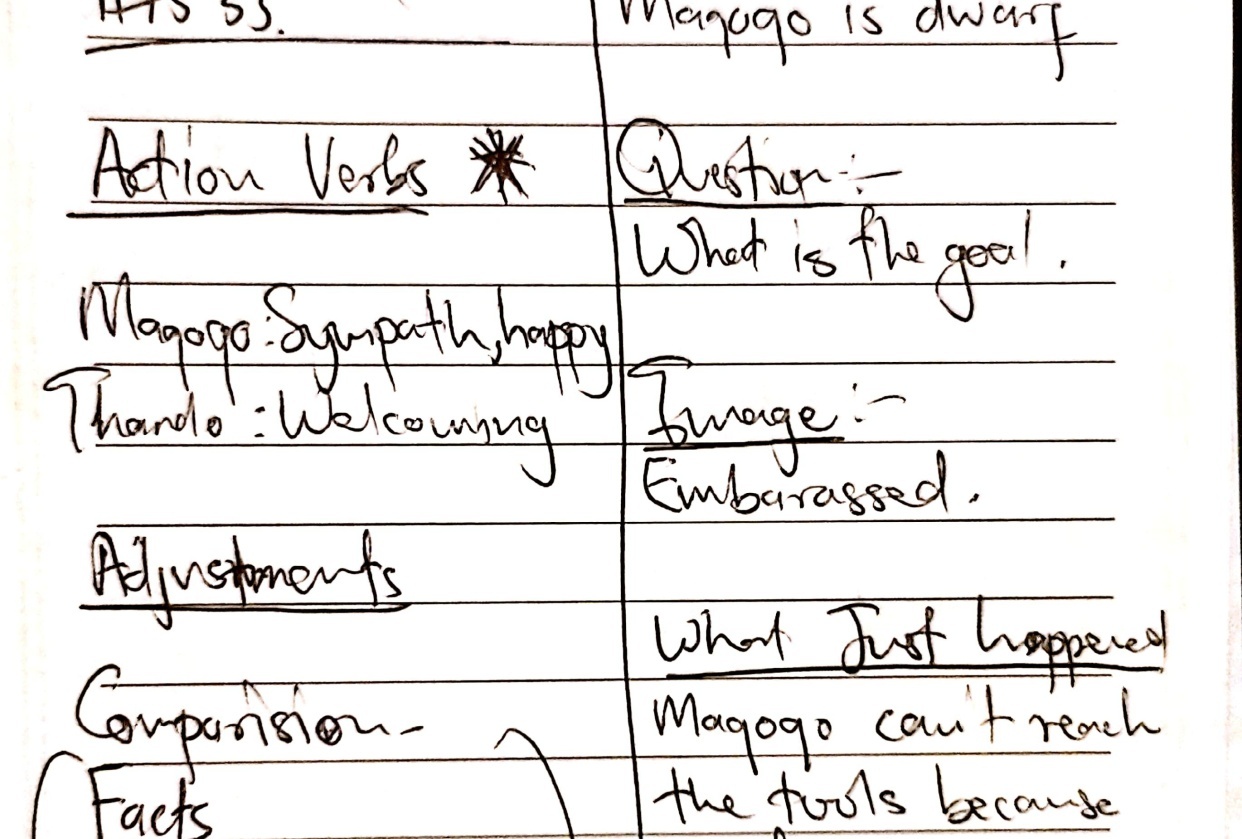 Magogo is dwarf
Action Verbs
Magogo: Sympath, happy
Thando: Welcoming
Adjustments
Comparision-
Facts
Question:-
What is the goal.
Image:-
Embarassed.
What Just happened
Magogo can't reach
the tools because